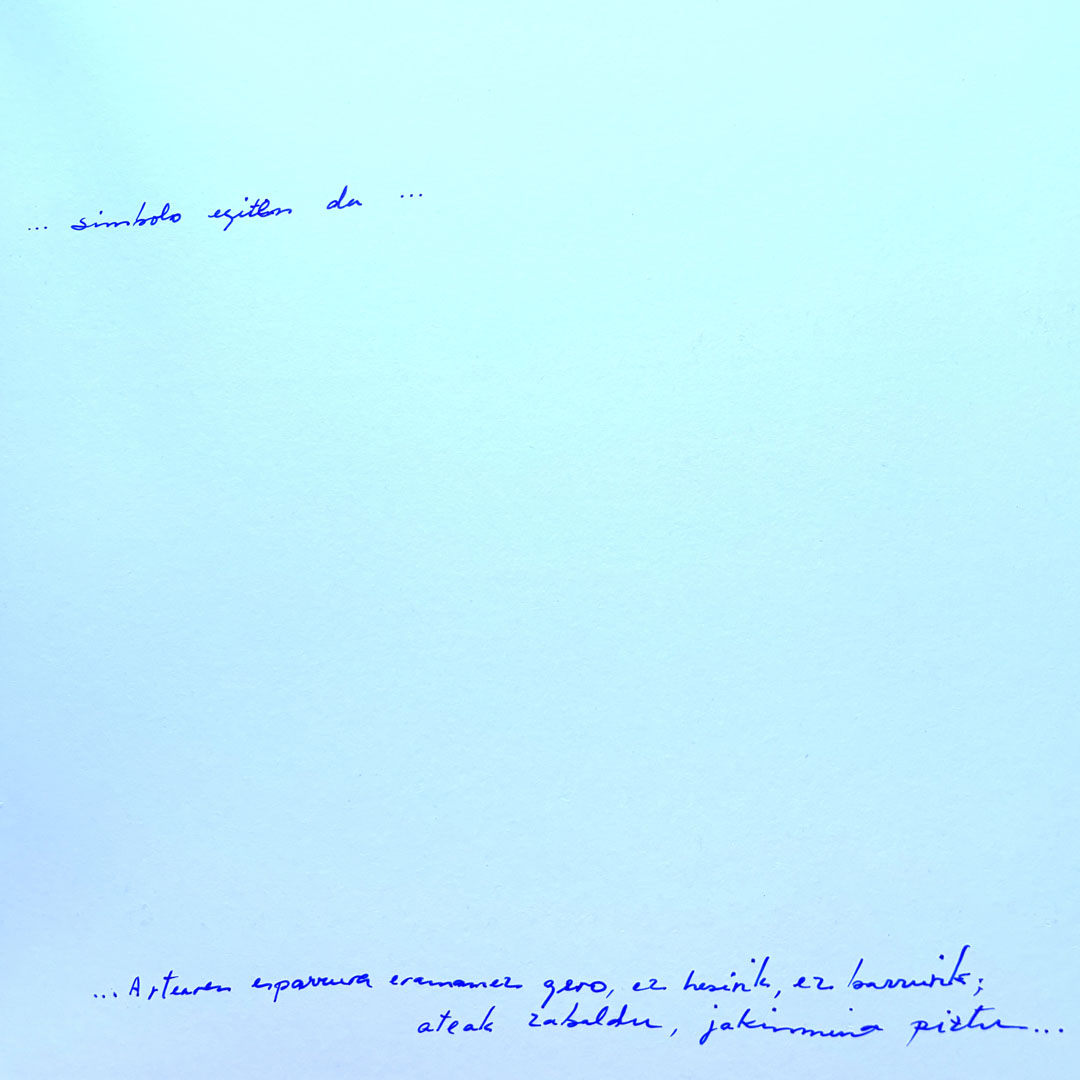 ... simbolo egiten da ...
...Artearen esparrura eramanez gero, ez hesirik, ez barrurik;
ateak zabaldu, jakinmina piztu...